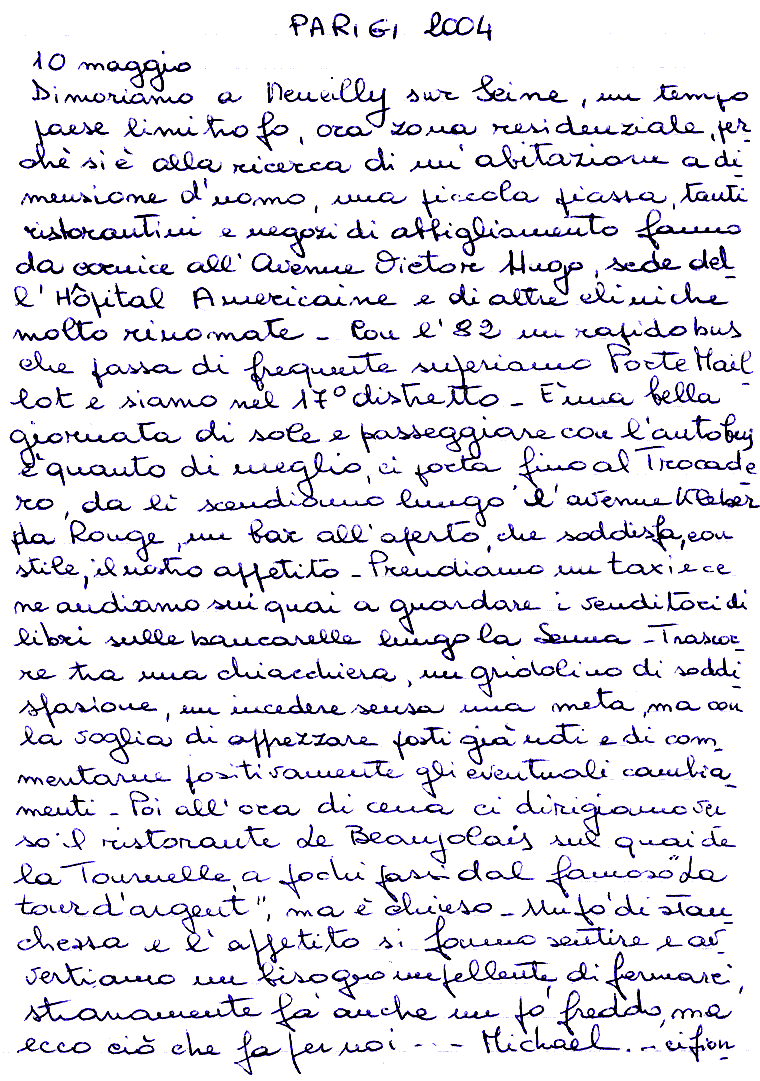 PARIGI 2004
10 maggio
Dimoriamo a Neueilly sur Seine, un tempo
paese limitrofo, ora zona residenziale, per
chè si è alla ricerca di un'abitazione a di
mensione d'uomo, una piccola piassa, tanti
ristorantini e negozi di abbigliamento fanno
da cornice all'Avenue Victor Hugo, sede del
l'Hôpital Americaine e di altre cliniche
molto rinomate - Con l'82 un rapido bus
che passa di frequente superiamo Porte Mail
lot e siamo nel 17° distretto - E' una bella
giornata di sole e passeggiare con l'autobus
è quanto di meglio, ci porta fino al Trocade
ro, da lì scendiamo lungo l'avenue Kleber
da Rouge, un bar all'aperto, che soddisfa, con
stile, il nostro appetito - Prendiamo un taxi e ce
ne andiamo sui quai a guardare i venditori di
libri sulle bancarelle lungo la Senna - Trascor
re tra una chiacchiera, un gridolino di soddi
sfasione, un incedere sensa una meta, ma con
la voglia di apprezzare posti già noti e di com
mentarne positivamente gli eventuali cambia
menti - Poi all'ora di cena ci dirigiamo ver
so il ristorante Le Beaujolais sul quai de
la Tournelle, a pochi passi dal famoso "La
tour d'argent", ma è chiuso - Un pò di stan
chessa e l'appetito si fanno sentire e av
vertiamo un bisogno impellente di fermarci,
stranamente fa anche un pò freddo, ma
ecco ciò che fa per noi --- Michael. - ci fion